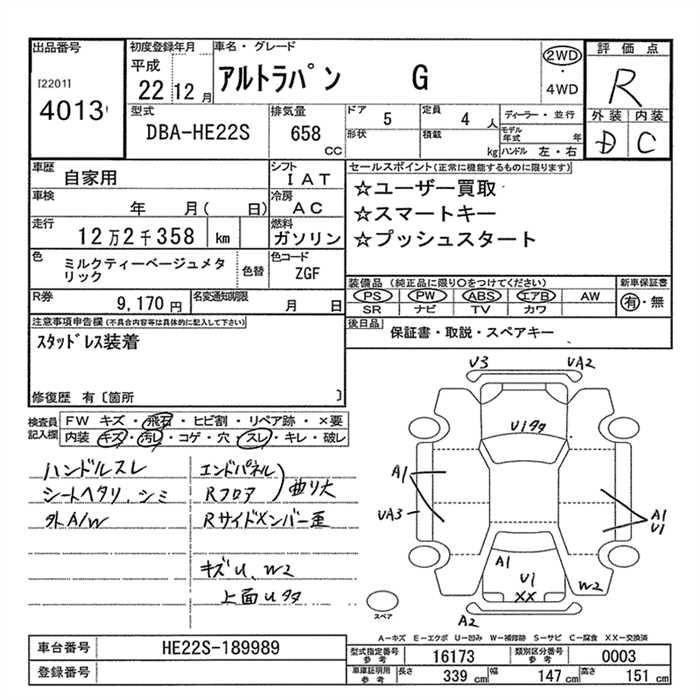 出品番号
[2201]
4013
初度登録年月
平成
22 12 月
車名・グレード
アルトラパン G
2WD
・
4WD
評価点
R
外装 内装
D C
型式
DBA-HE22S
排気量
658
cc
ドア 5
形状
定員 4 人
積載 kg
ディーラー・並行
モデル年式 年
ハンドル 左・右
車歴 自家用
シフト IAT
車検 年 月( 日)
冷房 AC
走行 12万2千358 km
燃料 ガソリン
色 ミルクティーベージュメタ
リック
色替
色コード ZGF
R券 9,170 円
名変通知期限 月 日
セールスポイント(正常に機能するものに限ります)
☆ユーザー買取
☆スマートキー
☆プッシュスタート
装備品(純正品に限り○をつけてください)
PS PW ABS エアB AW
SR ナビ TV カワ
新車保証書
有・無
後日品 保証書・取説・スペアキー
注意事項申告欄(不具合内容等は具体的に記入して下さい)
スタッドレス装着
修復歴 有〔箇所 〕
検査員
記入欄
FW キズ・飛石・ヒビ割・リペア跡・×要
内装 キズ・汚レ・コゲ・穴・スレ・キレ・破レ
ハンドルスレ
シートヘタリ、シミ
外A/W
エンドパネル
Rフロア
曲り大
Rサイドメンバー歪
キズU、W2
上面Uタタ
V3 UA2
U1タタ
A1
UA3
A1
U1
A1
U1
XX
W2
A2
スペア
A-キズ E-エクボ U-凹み W-補修跡 S-サビ C-腐食 XX-交換済
車台番号 HE22S-189989
登録番号
型式指定番号
参考
16173
類別区分番号
参考
0003
車庫証明用
参考
長さ 339 cm 幅 147 cm 高さ 151 cm